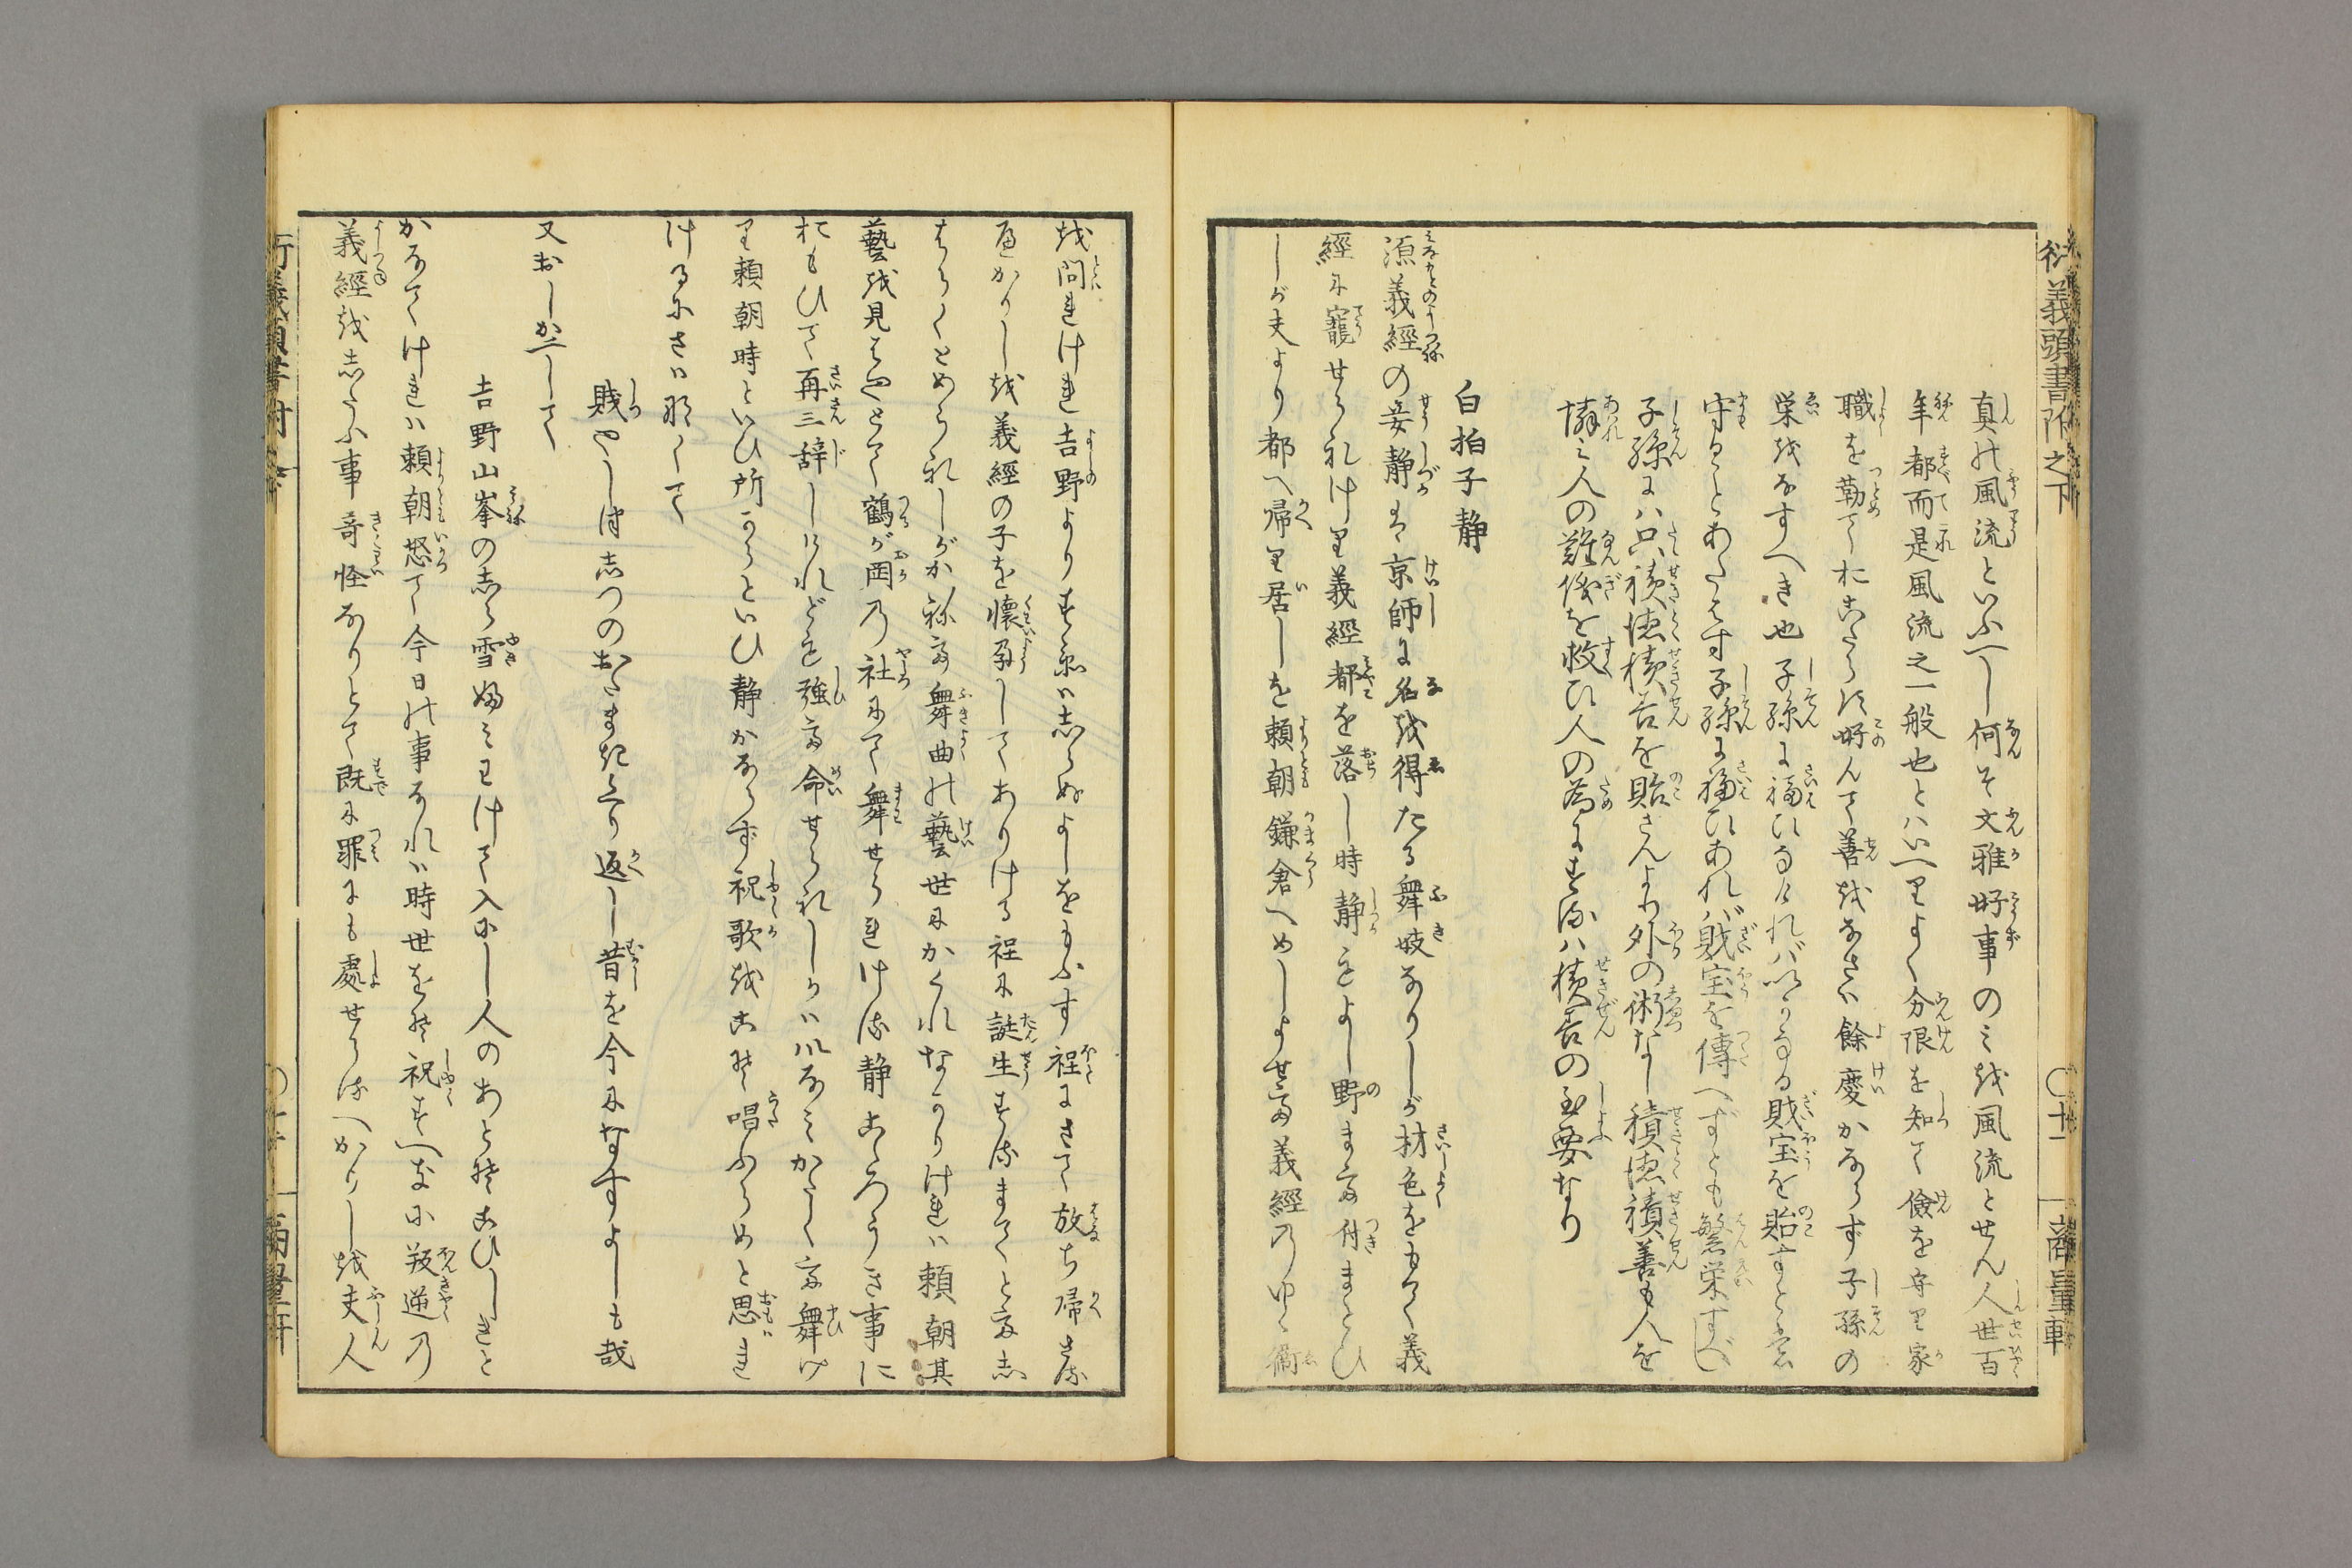 衍義頭書附之下
〇十一
商量軒
真の風流といふべし何そ文雅好事のミを風流とせん人世百
年都而是風流之一般也とハいへりよく分限を知て儉を守り家
職を勤ておこたらず好んで善をなさば餘慶かならず子孫の
栄をなすへき也子孫に福ひなければいかなる財宝を貽すとも
守ることあたはず子孫に福ひあれバ財宝を傳へずとも繁栄すべし
子孫にハ只積徳積善を貽さんより外の術なし積徳積善も人を
憐ミ人の難儀を救ひ人の為にするハ積善の至要なり
白拍子静
源義經の妾静は京師に名を得たる舞妓なりしが材色をもつて義
經に寵せられけり義經都を落し時静もよし野まで付まとひ
しが夫より都へ帰り居しを頼朝鎌倉へめしよせて義經のゆくゑ
を問れけれ吉野よりすゑハしらぬよしをもふす程にさて放ち帰さる
べかりしを義經の子を懐孕してありける程に誕生するまでとてし
はらくとめられしがかねて舞曲の藝世にかくれなかりけれハ頼朝其
藝を見はやとて鶴が岡の社にて舞せられける静こころうき事に
おもひて再三辞しけれども強て命せられしかハいなミがたくて舞け
り頼朝時といひ所からといひ静かならず祝歌をこそ唱ふらめと思れ
けるにさハ那くて
賤やしつしつのおたまきくり返し昔を今になすよしも哉
又おしかへして
吉野山峯のしら雪ふミわけて入にし人のあとそこひしきと
かなてけれハ頼朝怒て今日の事なれハ時世をそ祝すへきに叛逆の
義經をしたふ事奇怪なりとて既に罪にも處せらるへかりしを夫人